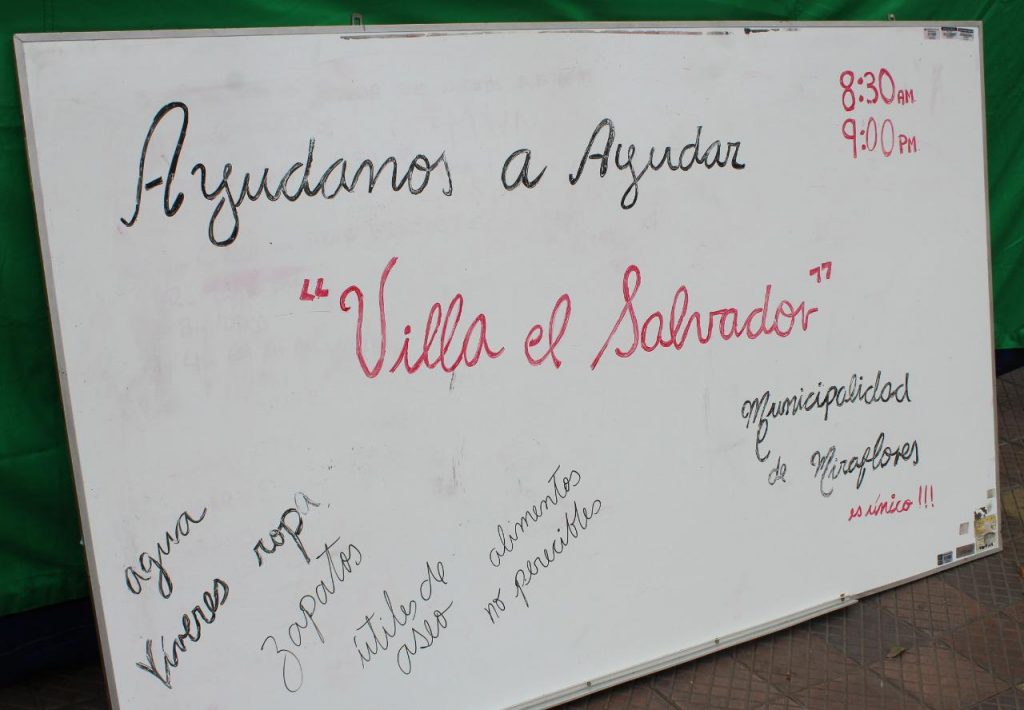 8:30 AM
9:00 PM
Ayudanos a Ayudar
"Villa el Salvador"
Municipalidad
de Miraflores
es único!!!
agua
Víveres
ropa
zapatos
útiles de
aseo
alimentos
no perecibles